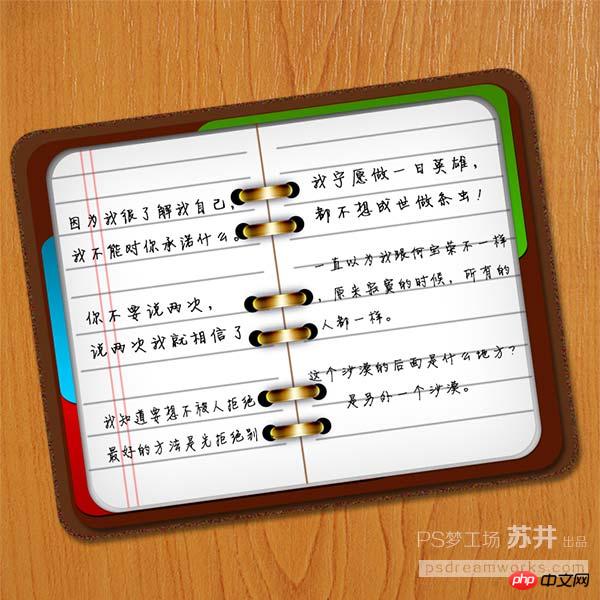 因为我很了解我自己，
我不能对你承诺什么。
你不要说两次，
说两次我就相信了
我知道要想不被人拒绝
最好的方法是先拒绝别
我宁愿做一日英雄，
都不想成世做条虫！
一直以为我跟何宝荣不一样
，原来寂寞的时候，所有的
人都一样。
这个沙漠的后面是什么地方？
是另外一个沙漠。
PS梦工场 苏井 出品
psdreamworks.com
php 中文网